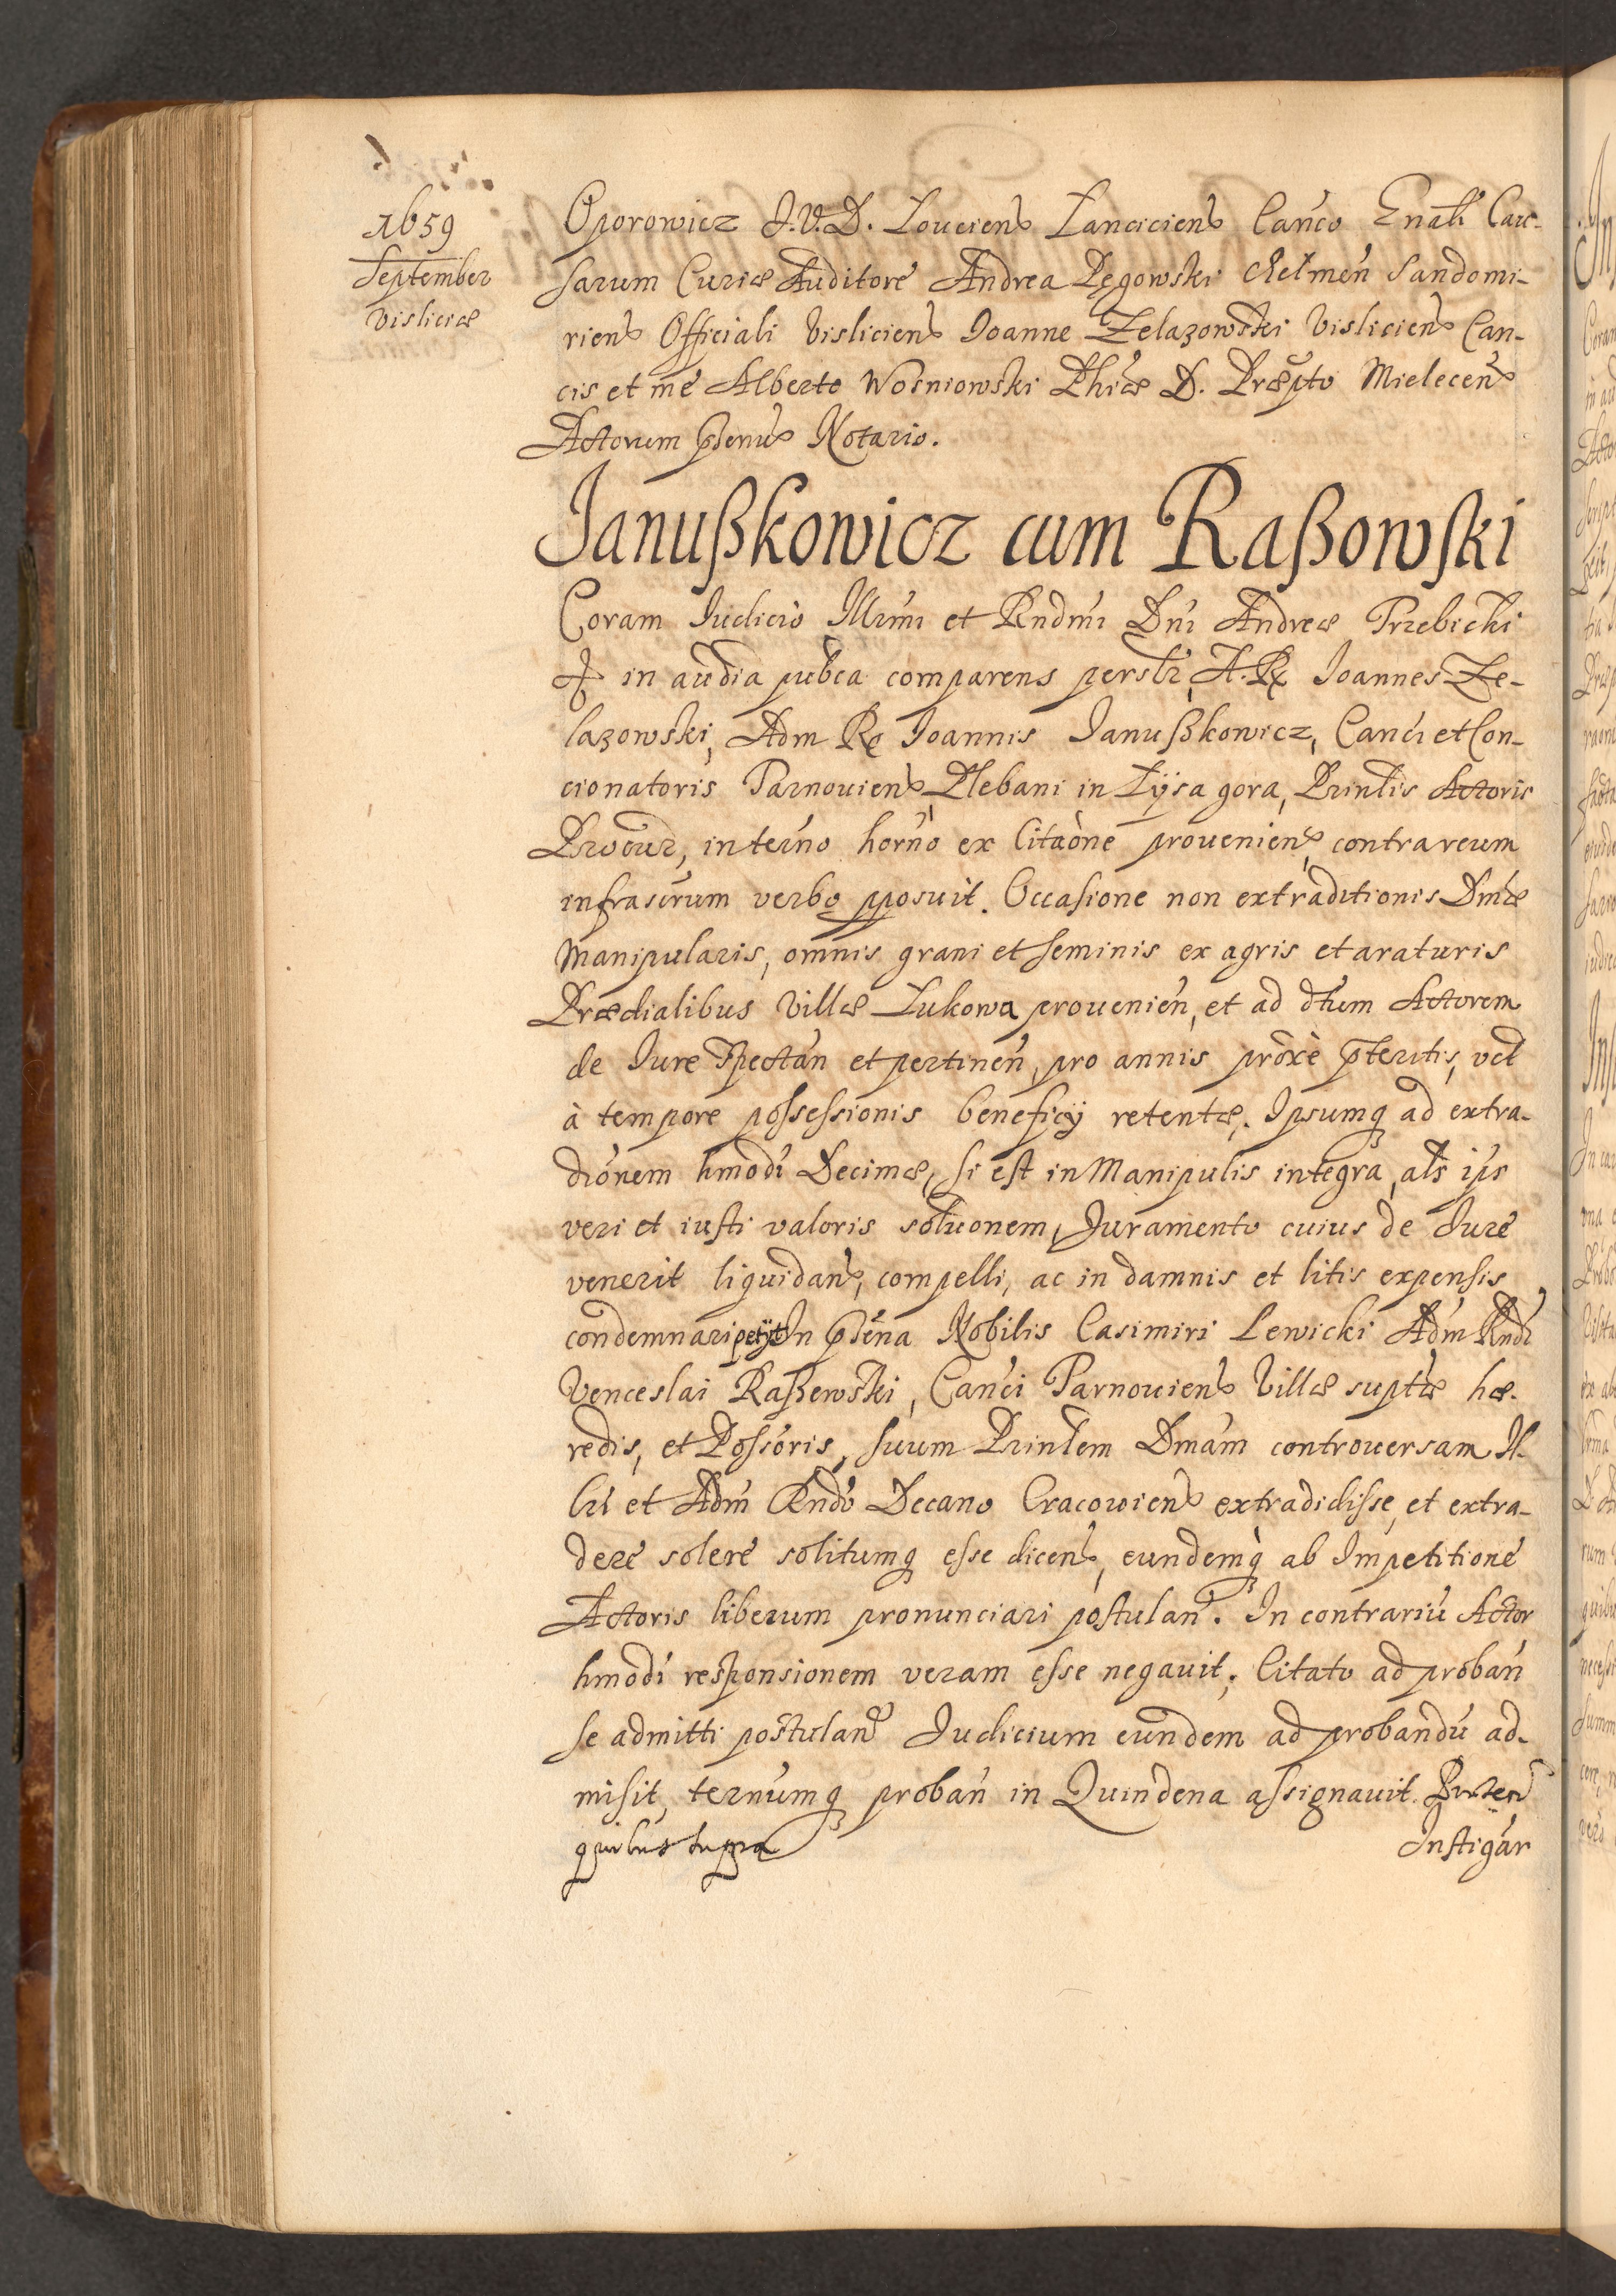 1659
September
Visliciæ
Oporowicz J.V.D. Loucien̄ Lancicien̄ Can̄co Gnali Cau-
sarum Curiæ Auditore Andrea Pęgowski Chełmen̄ Sandomi-
rien̄ Officiali Vislicien̄ Joanne Zelazowski Vislicien̄ Can-
cis et me Alberto Wosniowski Phiæ D. Præpto Mielecen̄
Actorum p̄senu̅ Notario.
Januβkowicz cum Raβowski
Coram Judicio Illmi et Rndmi Dni Andreæ Trzebicki
in audia pubca comparens persłr, A. R. Joannes Ze-
lazowski, Adm R. Joannis Januβkowicz, Canci et Con-
cionatoris Tarnouien̄ Plebani in Łysa gora, Prinlis Actoris
Procur, in terno horno ex Citaone prouenien̄, contra reum
infrascrum verbo pposuit. Occasione non extraditionis Dmæ
Manipularis, omnis grani et seminis ex agris et araturis
Prædialibus Villæ Lukowa prouenien̄, et ad dtum Actorem
de Jure spectan̄ et pertinen̄, pro annis proxè p̄teritis, vel
à tempore possessionis beneficij retentæ. Ipsumq̨ ad extra-
dionem hmodi Decimæ, si est in Manipulis integra, als ips
veri et iusti valoris soluonem, Juramento cuius de Jure
venerit liquidan̄, compelli, ac in damnis et litis expensis
condemnari petijt In p̄sena Nobilis Casimiri Lewicki Adm Rndi
Venceslai Raβewski, Canci Tarnouien̄ Villæ suptæ hæ-
redis, et Possoris, suum Prinlem Dmam controuersam Il-
lri et Adm Rndo Decano Cracowien̄ extradidisse, et extra-
dere solere solitumq̨ esse dicen̄, eundemq̨ ab Impetitione
Actoris liberum pronunciari postulan̄. In contrariū Actor
hmodi responsionem veram esse negauit. Citato ad proban̄
se admitti postulan̄ Judicium eundem ad probandū ad-
misit, ternumq̨ proban̄ in Quindena assignauit.
quibus supra
Instigar